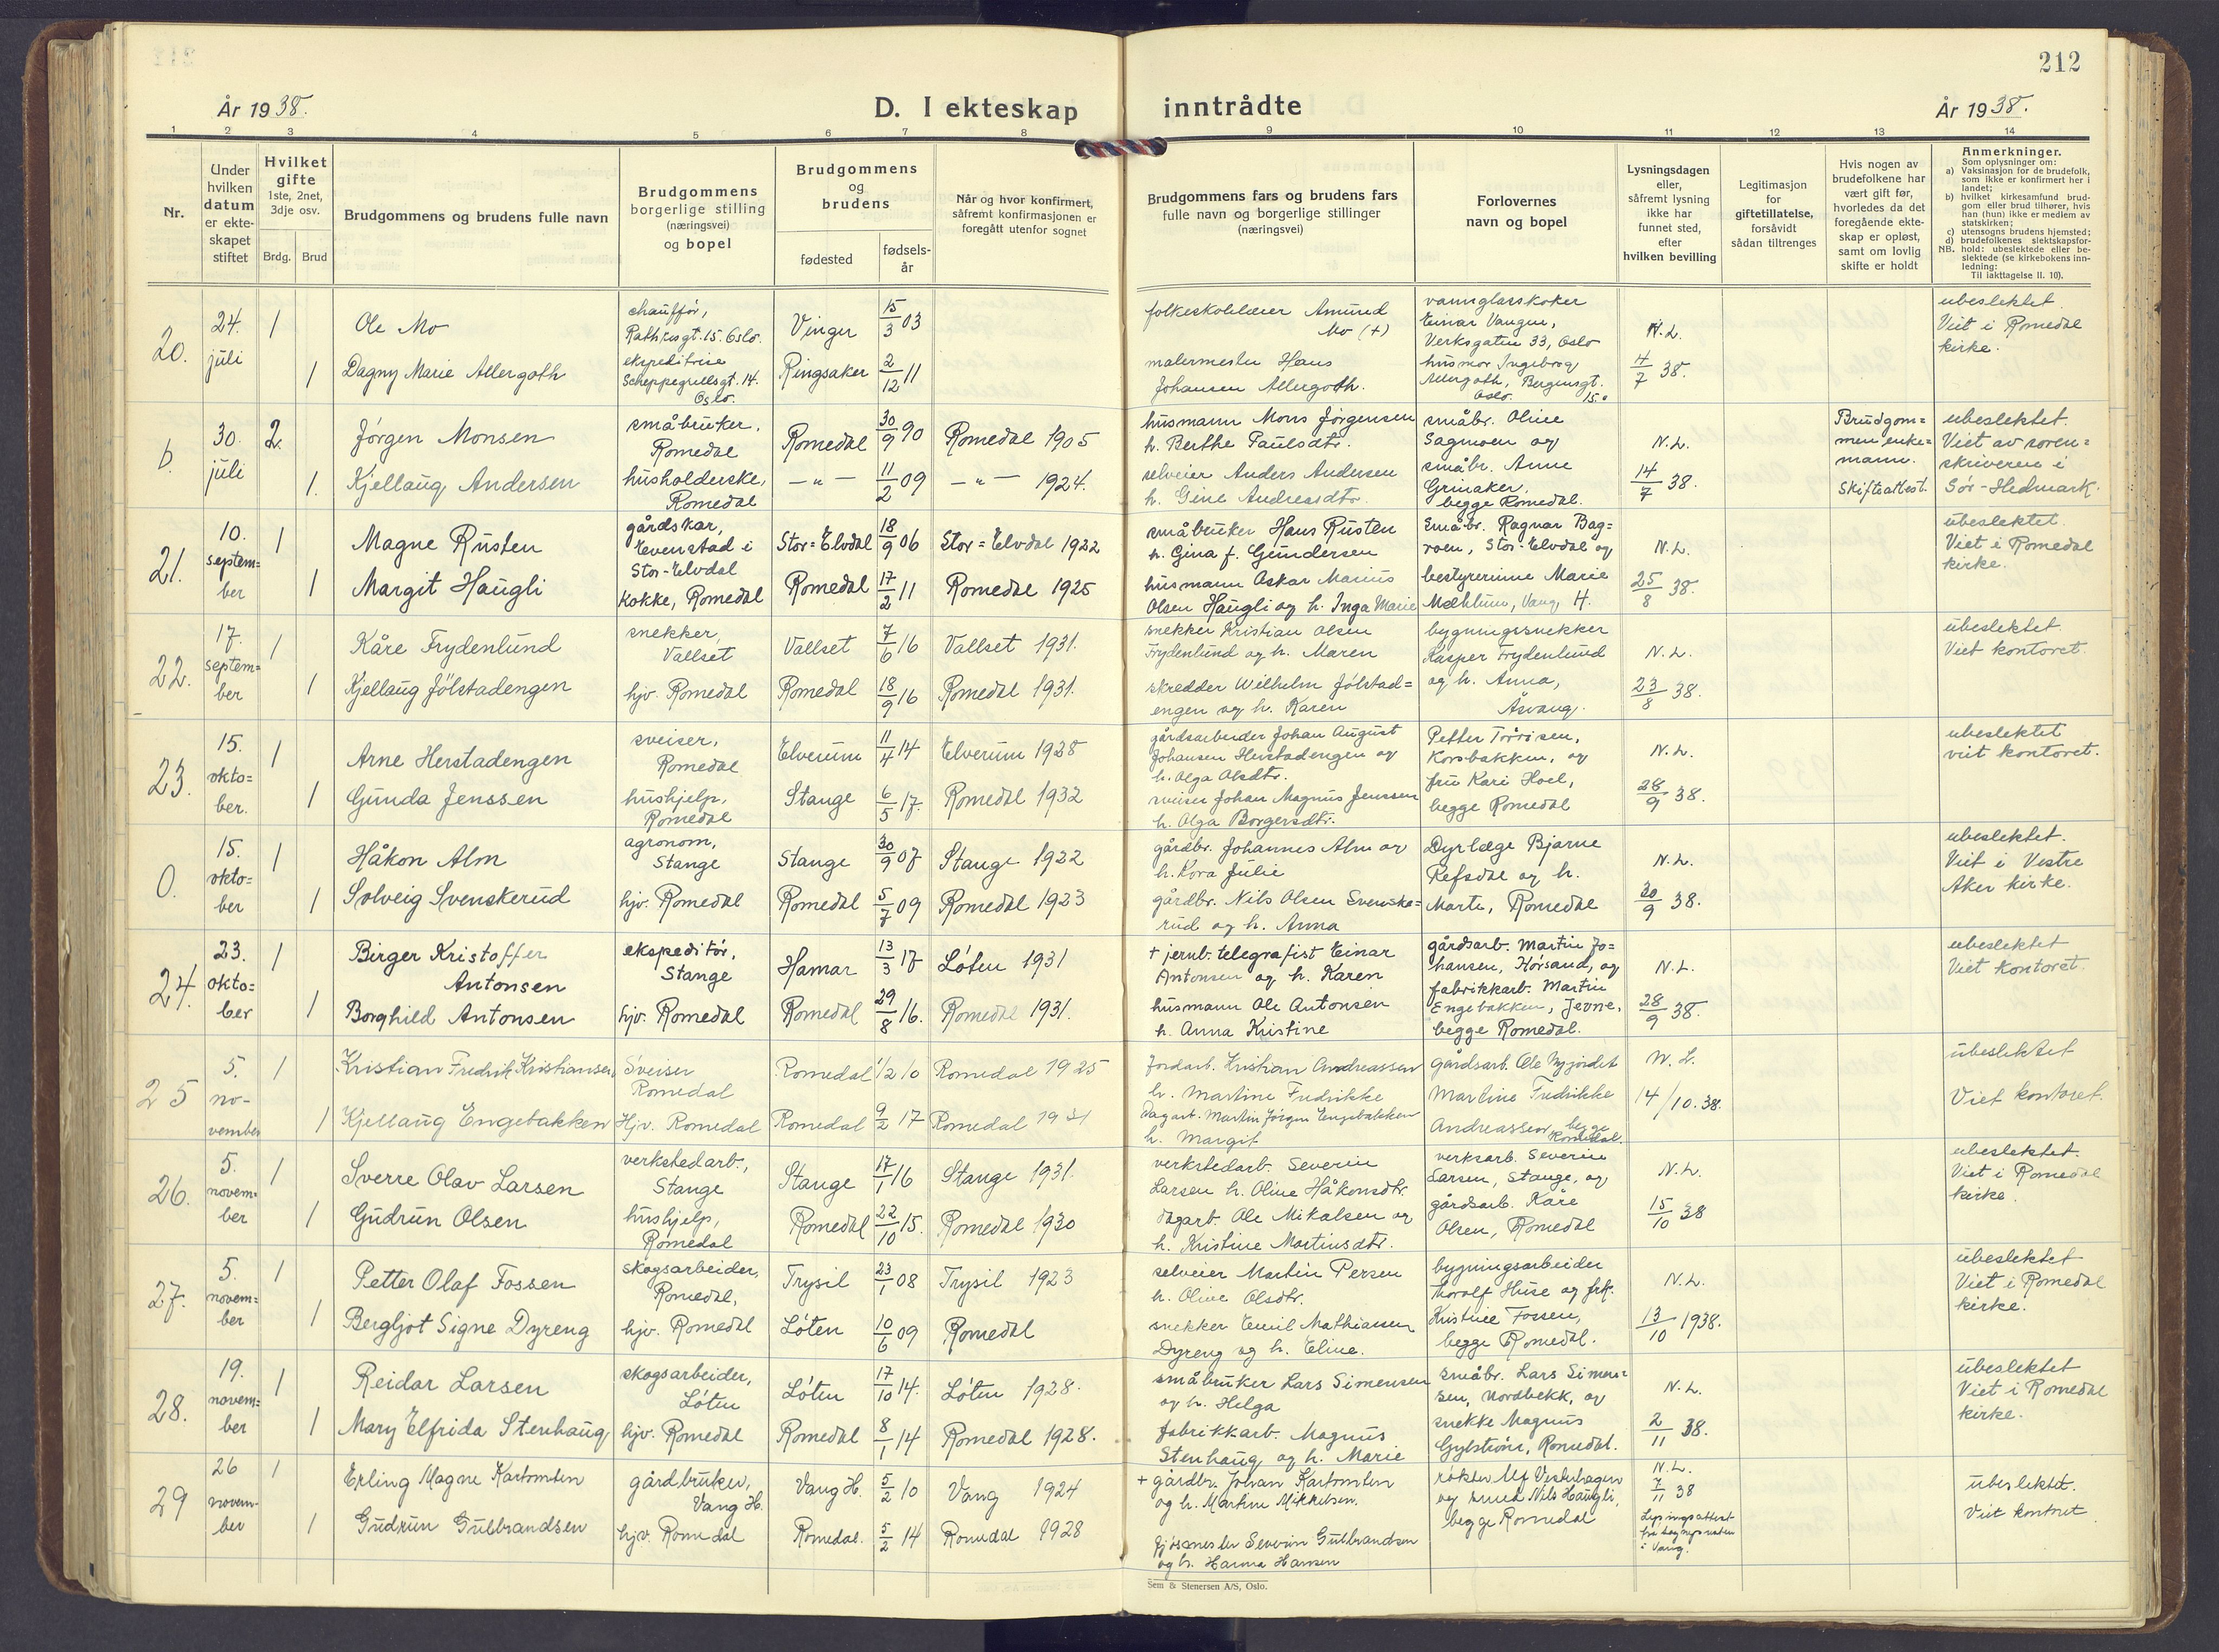 212
År 1938.
D. I ekteskap inntrådte
År 1938.
1 2 3 4 5 6 7 8 9 10 11 12 13 14
Nr.
Under hvilken datum er ekteskapet stiftet
Hvilket gifte 1ste, 2net, 3dje osv.
Brdg. Brud
Brudgommens og brudens fulle navn
Brudgommens borgerlige stilling (næringsvei) og bopel
Brudgommens og brudens
fødested
fødsels-år
Når og hvor konfirmert, såfremt konfirmasjonen er foregått utenfor sognet
Brudgommens fars og brudens fars fulle navn og borgerlige stillinger (næringsvei)
Forlovernes navn og bopel
Lysningsdagen eller, såfremt lysning ikke har funnet sted, efter hvilken bevilling
Legitimasjon for giftetillatelse, forsåvidt sådan tiltrenges
Hvis nogen av brudefolkene har vært gift før, hvorledes da det foregående ekteskap er opløst, samt om lovlig skifte er holdt
Anmerkninger.
Som oplysninger om:
a) Vaksinasjon for de brudefolk, som ikke er konfirmert her i landet;
b) hvilket kirkesamfund brudgom eller brud tilhører, hvis han (hun) ikke er medlem av statskirken;
c) utensogns brudens hjemsted;
d) brudefolkenes slektskapsforhold: ubeslektede eller beslektede (se kirkebokens innledning:
NB. Til iakttagelse II. 10).
20. 24. juli 1 Ole Mo chauffør, gt. 15. Oslo. Vinger 15/3 03 folkeskolelærer Amund Mo (+) vannglasskoker Einar Vangen, Verksgaten 33, Oslo N.L. ubeslektet. Viet i Romedal kirke.
1 Dagny Marie Allergoth ekspeditrise Scheppegrellsgt. 14. Oslo. Ringsaker 2/12 11 malermester Hans Johansen Allergoth. husmor Ingeborg Allergoth, Bergensgt. 15. Oslo. 4/7 38.
b. 30. juli 2. Jørgen Monsen småbruker, Romedal Romedal 30/9 90 Romedal 1905 husmann Mons Jørgensen h. Berthe Paulsdtr. småbr. Oline Sagmoen og N.L. Brudgommen enkemann. Skifteattest. ubeslektet. Viet av sorenskriveren i Sør-Hedmark.
1. Kjellaug Andersen husholderske, Romedal —"— 11/2 09 —"— 1924. selveier Anders Andersen h. Gine Andreasdtr. småbr. Anne Grinaker, begge Romedal. 14/7 38.
21. 10. september 1 Magne Rusten gårdskar, Evenstad i Stor-Elvdal Stor=Elvdal 18/9 06 Stor=Elvdal 1922 småbruker Hans Rusten h. Gina f. Gundersen Småbr. Ragnar Bagroen, Stor-Elvdal og N.L. ubeslektet. Viet i Romedal kirke.
1 Margit Haugli Kokke, Romedal Romedal 17/2 11 Romedal 1925 husmann Oskar Marius Olsen Haugli og h. Inga Marie bestyrerinne Marie Mælhlum, Vang H. 25/8 38.
22. 17. september 1 Kåre Frydenlund snekker, Vallset Vallset 7/6 16 Vallset 1931. snekker Kristian Olsen Frydenlund og h. Maren bygningssnekker Kasper Frydenlund N.L. ubeslektet. Viet kontoret.
1 Kjellaug Jølstadengen hjv. Romedal Romedal 18/9 16 Romedal 1931. skredder Wilhelm Jølstadengen og h. Karen og h. Anna, Åsvang. 23/8 38.
23. 15. oktober. 1 Arne Herstadengen sveiser, Romedal Elverum 11/4 14 Elverum 1928 gårdsarbeider Johan August Johansen Herstadengen og h. Olga Olsdtr. Petter Torrisen, Korsbakken, og N.L. ubeslektet viet kontoret.
1 Gunda Jenssen hushjelp, Romedal Stange 6/5 17. Romedal 1932 sveiser Johan Magnus Jenssen h. Olga Borgersdtr. fru Kari Hoel, begge Romedal 28/9 38.
0. 15. oktober 1 Håkon Alm agronom, Stange Stange 30/9 07 Stange 1922 gårdbr. Johannes Alm og h. Kora Julie Dyrlæge Bjarne Refsdal og h. N.L. ubeslektet. Viet i Vestre Aker kirke.
1 Solveig Svenskerud hjv. Romedal Romedal 5/7 09 Romedal 1923 gårdbr. Nils Olsen Svenskerud og h. Anna Marte, Romedal 30/9 38.
24. 23. oktober 1 Birger Kristoffer Antonsen ekspeditør, Stange Hamar 13/3 17 Løten 1931 + jernb. telegrafist Einar Antonsen og h. Karen gårdsarb. Martin Johansen, Horsand, og N.L. ubeslektet Viet kontoret.
1 Borghild Antonsen hjv. Romedal Romedal 29/8 16. Romedal 1931. husmann Ole Antonsen h. Anna Kristine fabrikkarb. Martin Engebakken, Jevne, begge Romedal. 28/9 38.
25 5. november 1 Kristian Fredrik Kristiansen Sveiser Romedal Romedal 1/2 10 Romedal 1925 Jordarb. Kristian Andreassen h. Martine Fredrikke gårdsarb. Ole Nyjordet N.L. ubeslektet
1 Kjellaug Engebakken Hjv. Romedal Romedal 9/2 17 Romedal 1931 Dagarb. Martin Jørgen Engebakken h. Margit Martine Fredrikke Andreassen begge Romedal. 14/10.38. Viet kontoret.
26. 5. november 1 Sverre Olav Larsen verkstedarb., Stange Stange 17/1 16 Stange 1931. verkstedarb. Severin Larsen h. Oline Håkonsdtr. verksarb. Severin Larsen, Stange, og N.L. ubeslektet. Viet i Romedal kirke.
1 Gudrun Olsen hushjelp, Romedal Romedal 22/10 15. Romedal 1930 dagarb. Ole Mikalsen og h. Kristine Martinsdtr. gårdsarb. Kåre Olsen, Romedal 15/10 38
27. 5. november 1 Petter Olaf Fossen skogsarbeider, Romedal, Trysil 23/1 08 Trysil 1923 selveier Martin Persen h. Oline Olsdtr. bygningsarbeider Thorolf Huse og frk. N.L. ubeslektet Viet i Romedal kirke.
1 Bergljot Signe Dyreng hjv. Romedal Løten 10/6 09 Romedal snekker Emil Mathiassen Dyreng og h. Eline. Kristine Fossen, begge Romedal. 13/10 1938.
28. 19. november 1 Reidar Larsen skogsarbeider, Løten Løten 17/10 14. Løten 1928. småbruker Lars Simensen og h. Helga småbr. Lars Simensen, Nordbekk, og N.L. ubeslektet Viet i Romedal kirke.
1 Mary Elfrida Stenhaug hjv. Romedal Romedal 8/1 14 Romedal 1928. fabrikkarb. Magnus Stenhaug og h. Marie snekke Magnus Gylstrøm, Romedal. 2/11 38.
29 26 november 1 Erling Magne Kartomten gårdbruker, Vang H. Vang H. 5/2 10 Vang 1924 + gårdbr. Johan Kartomten og h. Martine Mikkelsen. røkter Alf Vesterhagen N.L. 7/11 38 ubeslektet. Viet kontoret
1 Gudrun Gulbrandsen hjv. Romedal Romedal. 5/2 14 Romedal 1928 Gjøsmester Severin Gulbrandsen og h. Hanna Hansen og Nils Haugli, begge Romedal Lysningsattest fra sognepresten i Vang.
Sem & Stenersen A/S, Oslo.